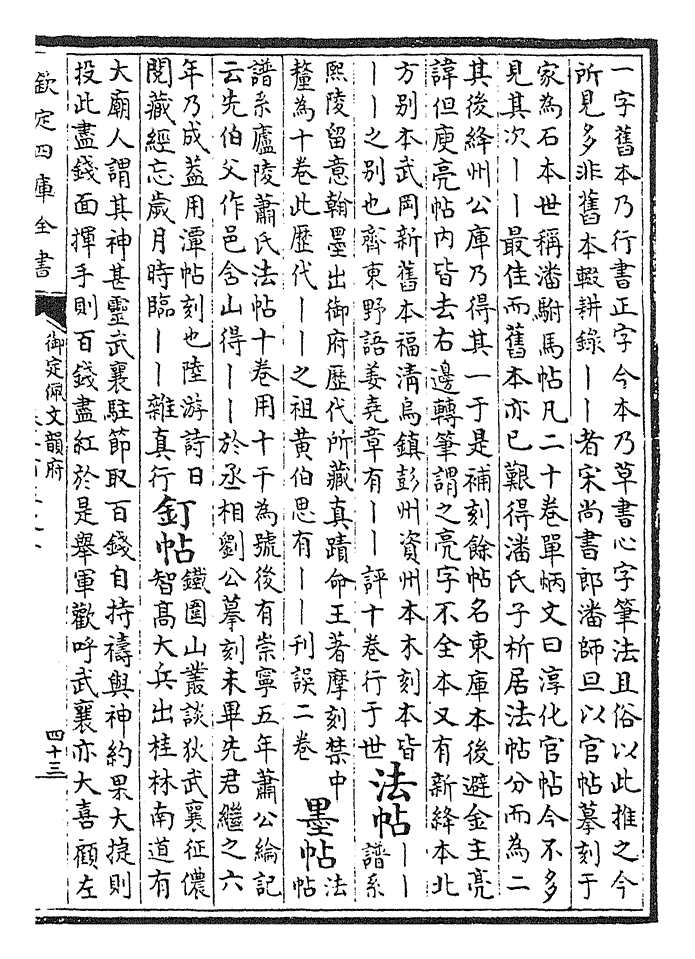 一字舊本乃行書正字今本乃草書心字筆法且俗以此推之今
所見多非舊本輟耕錄丨丨者宋尚書郎潘師旦以官帖摹刻于
家為石本世稱潘駙馬帖凡二十卷單炳文曰淳化官帖今不多
見其次丨丨最佳而舊本亦已艱得潘氏子析居法帖分而為二
其後絳州公庫乃得其一于是補刻餘帖名東庫本後避金主亮
諱但庾亮帖内皆去右邊轉筆謂之亮字不全本又有新絳本北
方别本武岡新舊本福清烏鎮彭州資州本木刻本皆
丨丨之别也齊東野語姜堯章有丨丨評十卷行于世
法帖
丨丨
譜系
熙陵留意翰墨出御府歴代所藏真蹟命王著摩刻禁中
釐為十卷此歴代丨丨之祖黄伯思有丨丨刊誤二卷
墨帖
法
帖
譜系廬陵蕭氏法帖十卷用十干為號後有崇寧五年蕭公綸記
云先伯父作邑含山得丨丨於丞相劉公摹刻未畢先君繼之六
年乃成葢用潭帖刻也陸游詩日
閲藏經忘歲月時臨丨丨雜真行
釘帖
鐵圍山叢談狄武襄征儂
智髙大兵出桂林南道有
大廟人謂其神甚靈武襄駐節取百錢自持禱與神約果大捷則
投此盡錢面揮手則百錢盡紅於是舉軍歡呼武襄亦大喜顧左
欽定四庫全書
御定佩文韻府
四十三